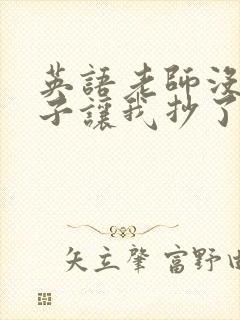 英語老師沒
子讓我抄了
矢立肇 富野由